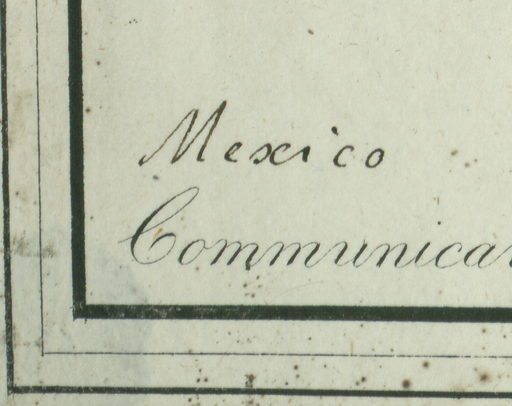 Mexico
Communicar